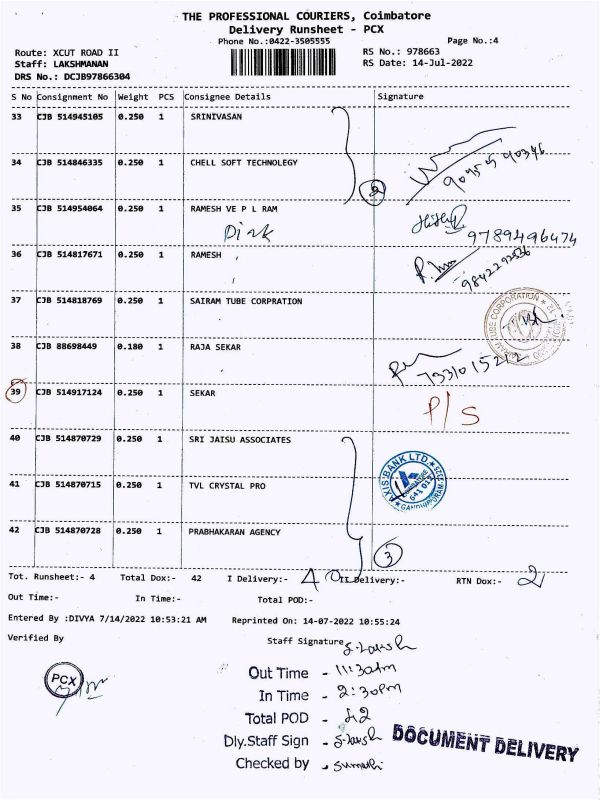 THE PROFESSIONAL COURIERS, Coimbatore
Delivery Runsheet - PCX
Phone No.:0422-3505555 Page No.:4
Route: XCUT ROAD II RS No.: 978663
Staff: LAKSHMANAN RS Date: 14-Jul-2022
DRS No.: DCJB97866304
S No Consignment No Weight PCS Consignee Details Signature
33 CJB 514945105 0.250 1 SRINIVASAN
34 CJB 514846335 0.250 1 CHELL SOFT TECHNOLEGY
2
35 CJB 514954064 0.250 1 RAMESH VE P L RAM
9789496474
36 CJB 514817671 0.250 1 RAMESH
37 CJB 514818769 0.250 1 SAIRAM TUBE CORPRATION
38 CJB 88698449 0.180 1 RAJA SEKAR
39 CJB 514917124 0.250 1 SEKAR P/S
40 CJB 514870729 0.250 1 SRI JAISU ASSOCIATES
AXIS BANK LTD.
41 CJB 514870715 0.250 1 TVL CRYSTAL PRO
42 CJB 514870728 0.250 1 PRABHAKARAN AGENCY
3
Tot. Runsheet:- 4 Total Dox:- 42 I Delivery:- 40 II Delivery:- RTN Dox:- 2
Out Time:- In Time:- Total POD:-
Entered By :DIVYA 7/14/2022 10:53:21 AM Reprinted On: 14-07-2022 10:55:24
Verified By Staff Signature S. Laksh
PCX
Out Time - 11:30am
In Time - 2:30pm
Total POD - 42
Dly.Staff Sign - S. Laksh
Checked by - Sumathi
DOCUMENT DELIVERY